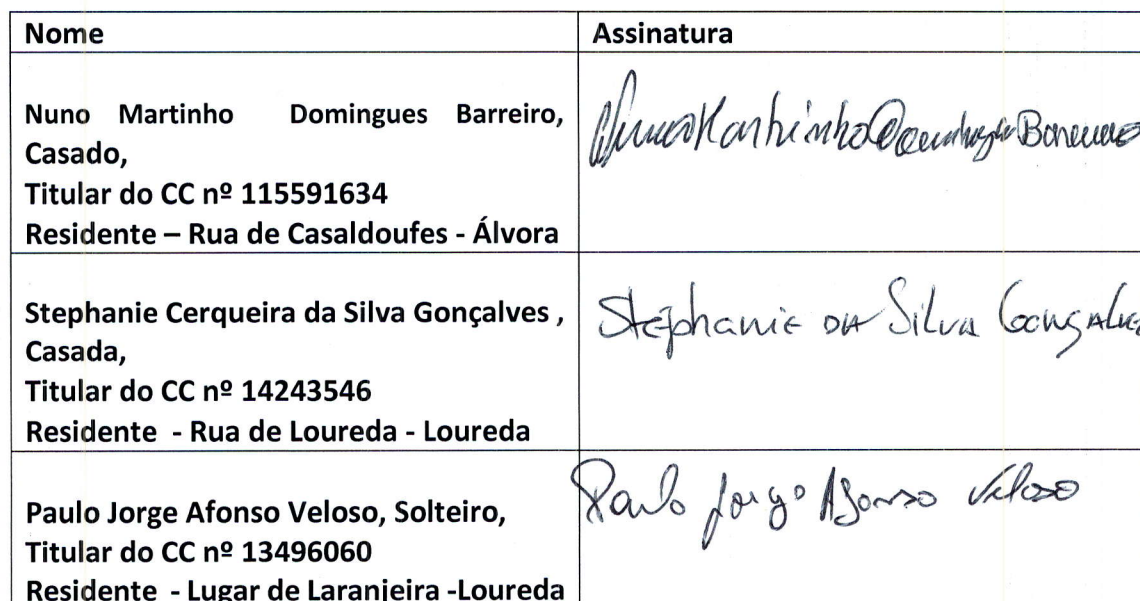 Nome Assinatura
Nuno Martinho Domingues Barreiro,
Casado,
Titular do CC nº 115591634
Residente – Rua de Casaldoufes - Álvora
Nuno Martinho Domingues Barreiro
Stephanie Cerqueira da Silva Gonçalves ,
Casada,
Titular do CC nº 14243546
Residente - Rua de Loureda - Loureda
Stephanie DA Silva Gonçalves
Paulo Jorge Afonso Veloso, Solteiro,
Titular do CC nº 13496060
Residente - Lugar de Laranjeira -Loureda
Paulo Jorge Afonso Veloso